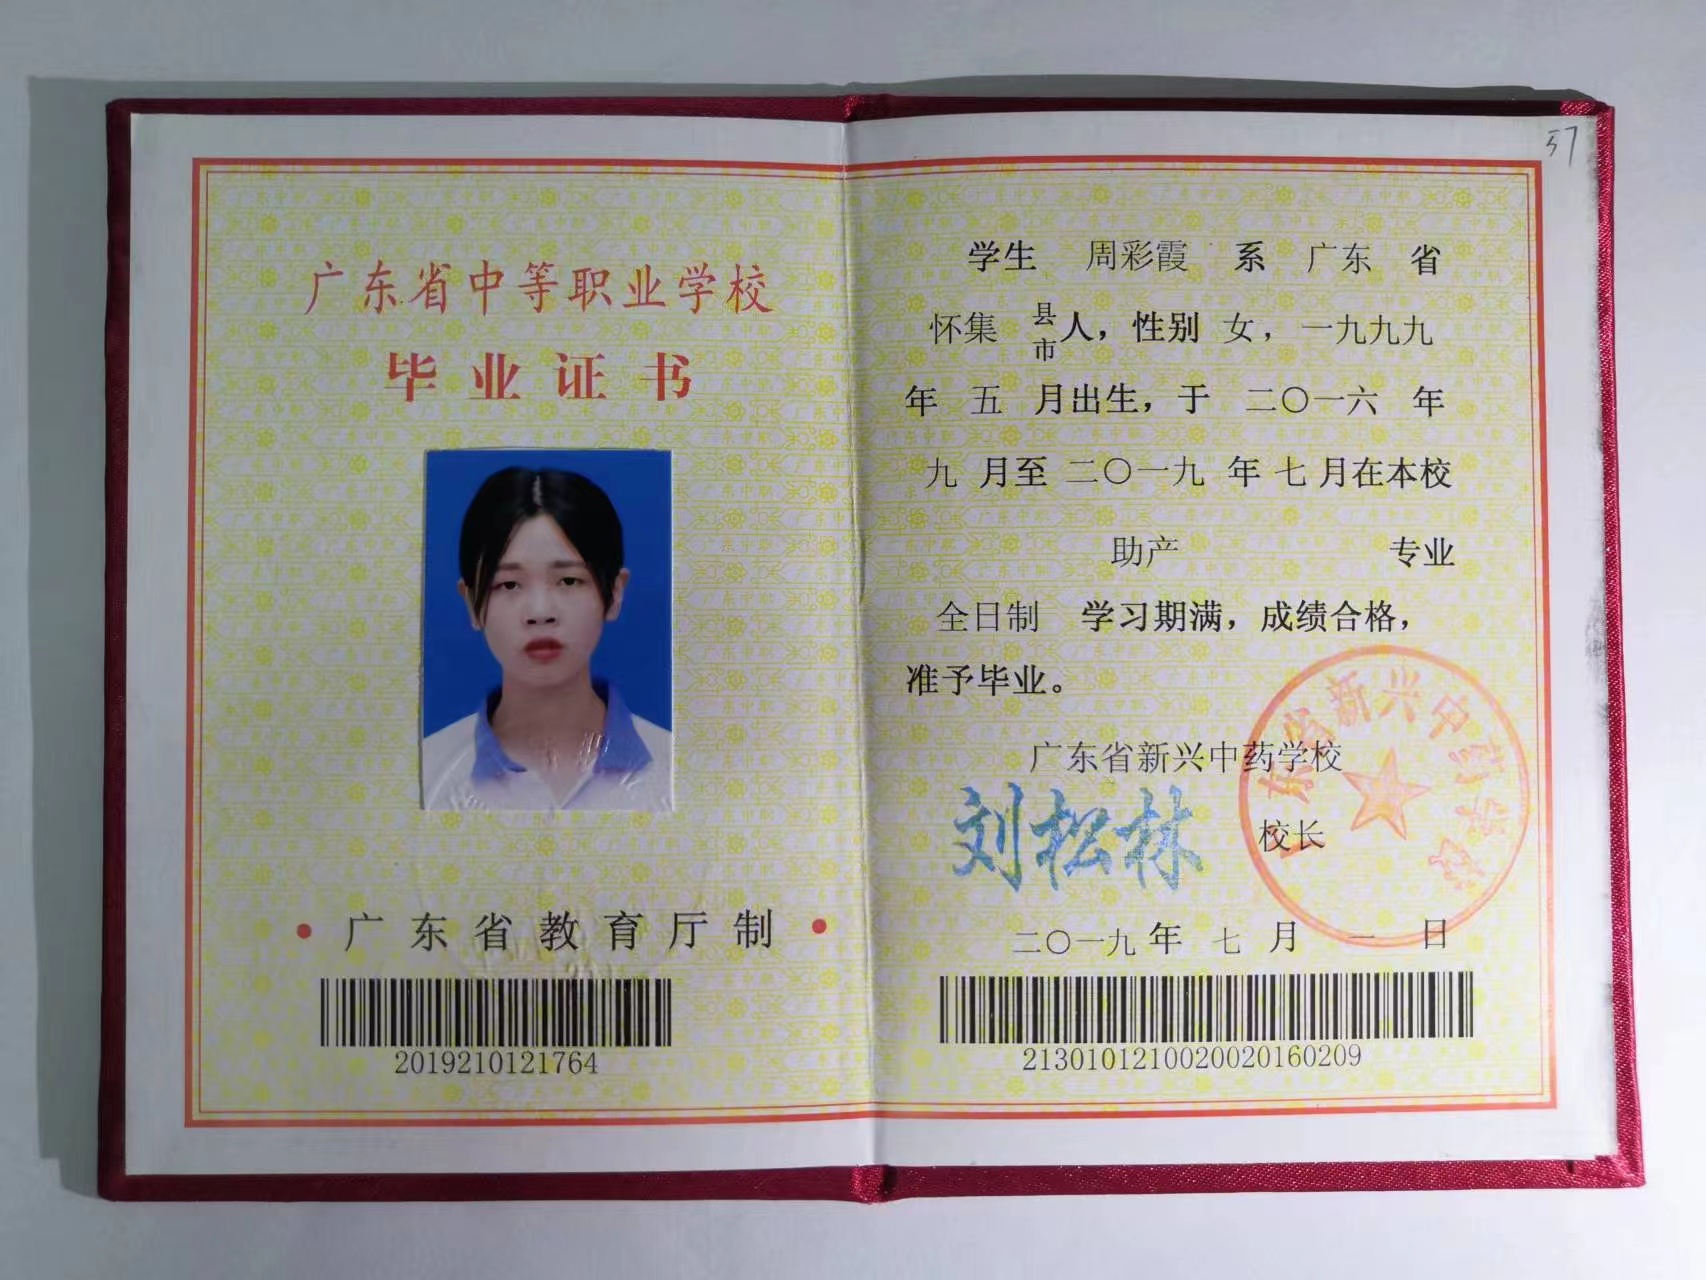 广东省中等职业学校
毕业证书
• 广东省教育厅制 •
2019210121764
57
学生 周彩霞 系 广东 省
怀集 县市人，性别 女，一九九九
年 五 月出生，于 二〇一六 年
九 月至 二〇一九 年 七 月在本校
助产 专业
全日制 学习期满，成绩合格，
准予毕业。
广东省新兴中药学校
刘松林 校长
广东省新兴中药学校
二〇一九 年 七 月 一 日
2130101210020020160209